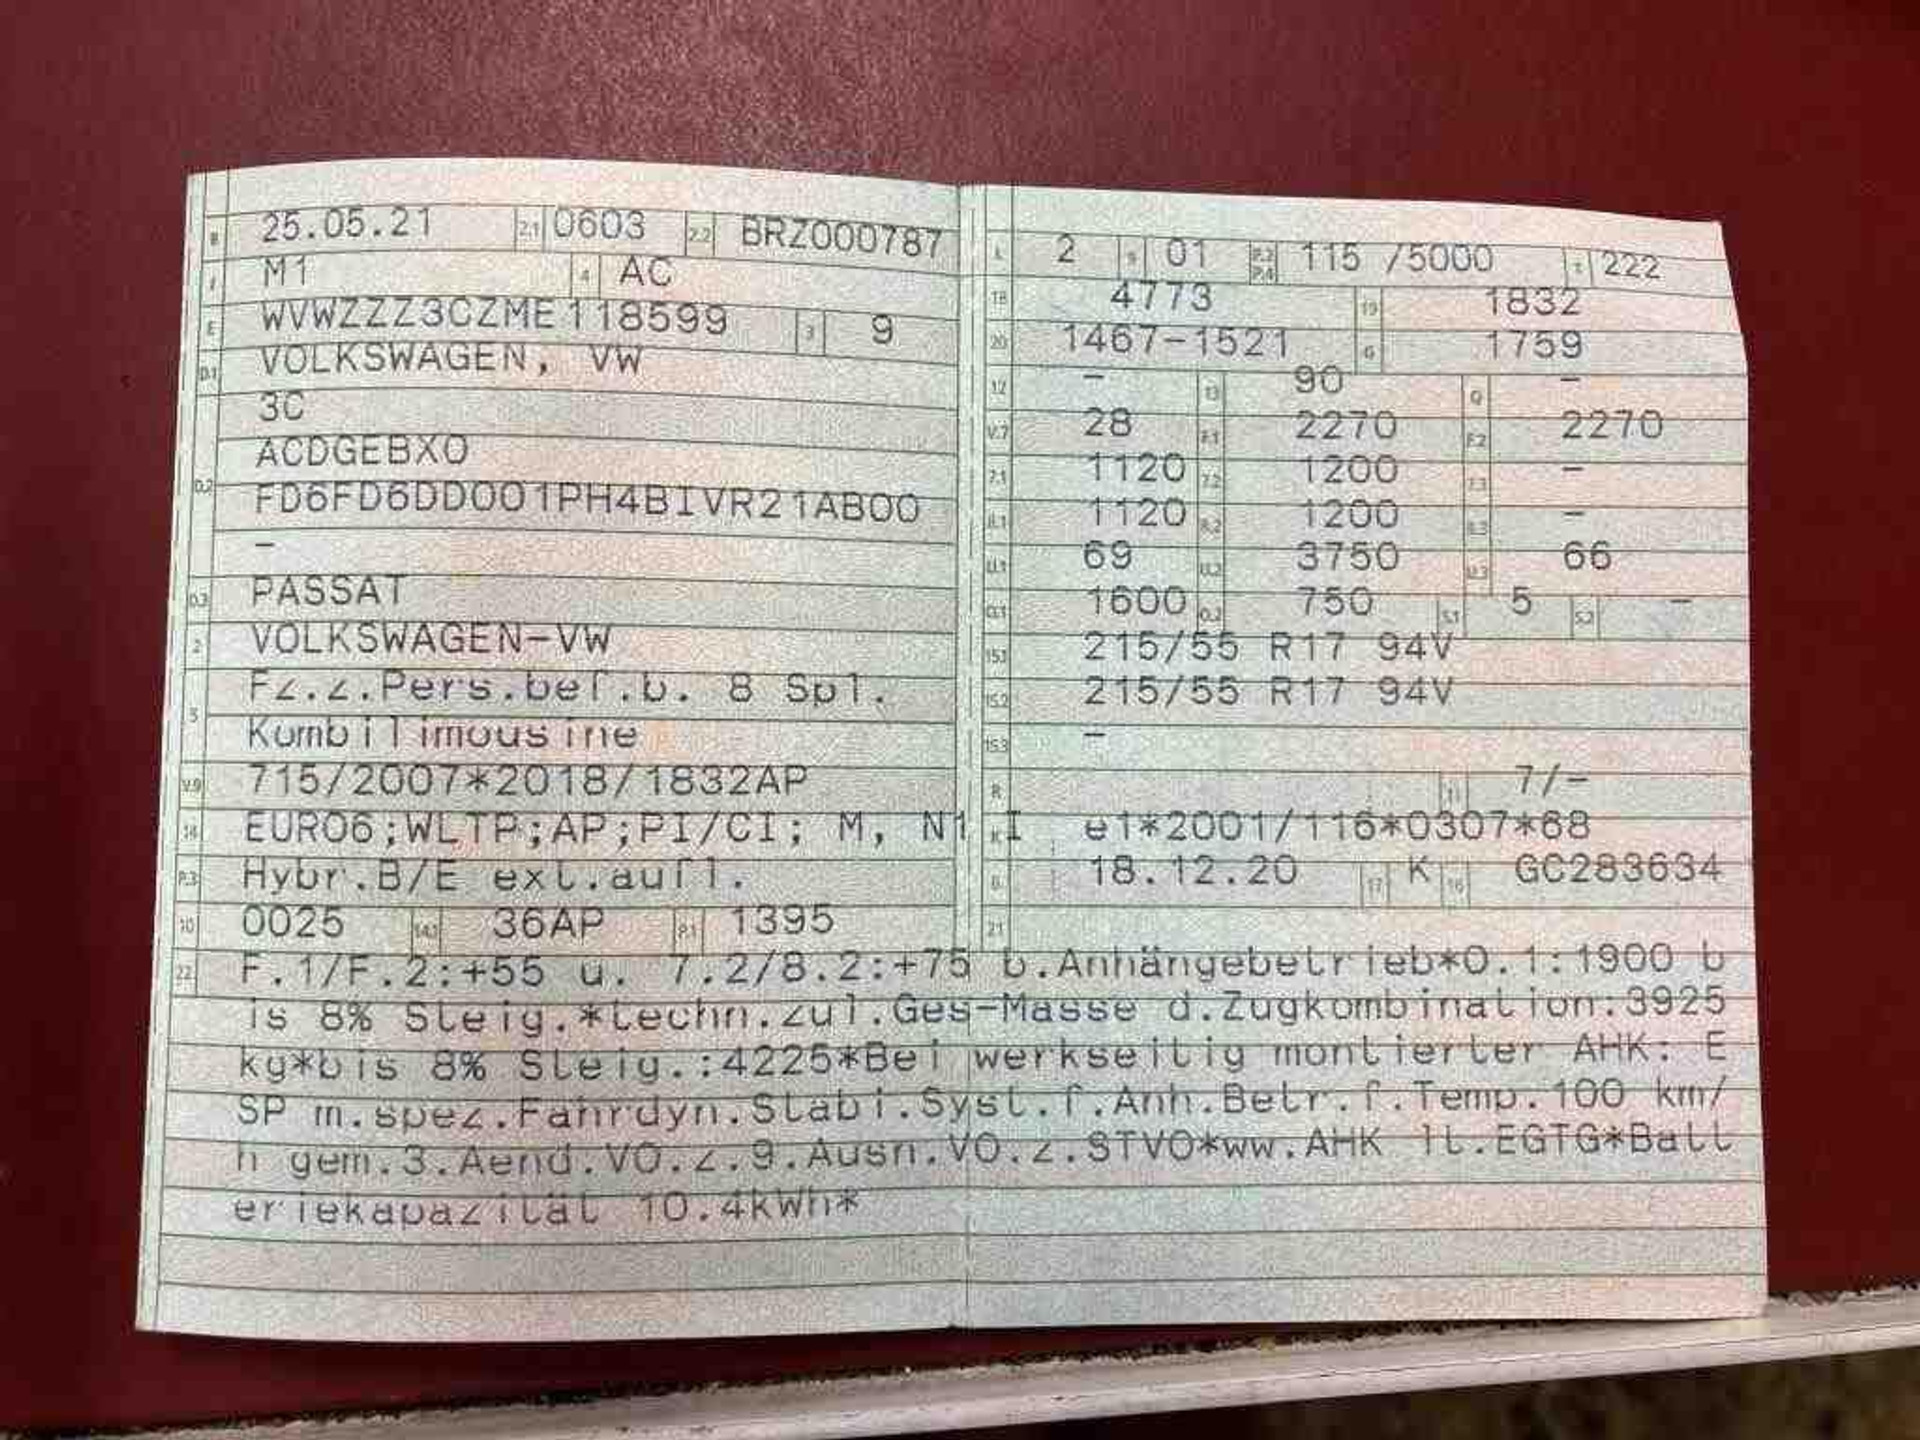 B 25.05.21 2.1 0603 2.2 BRZ000787
J M1 4 AC
E WVWZZZ3CZME118599 3 9
D.1 VOLKSWAGEN, VW
3C
D.2 ACDGEBX0
FD6FD6DD001PH4BIVR21AB00
–
D.3 PASSAT
2 VOLKSWAGEN-VW
5 Fz.z.Pers.bef.b. 8 Spl.
Kombilimousine
V.9 715/2007*2018/1832AP
14 EURO6;WLTP;AP;PI/CI; M, N1 I
P.3 Hybr.B/E ext.aufl.
10 0025 14.1 36AP P.1 1395
L 2 9 01 P.2 P.4 115 /5000 T 222
18 4773 19 1832
20 1467-1521 G 1759
12 – 13 90 Q –
V.7 28 F.1 2270 F.2 2270
7.1 1120 7.2 1200 7.3 –
8.1 1120 8.2 1200 8.3 –
U.1 69 U.2 3750 U.3 66
O.1 1600 O.2 750 S.1 5 S.2 –
15.1 215/55 R17 94V
15.2 215/55 R17 94V
15.3 –
R 11 7/–
K e1*2001/116*0307*68
6 18.12.20 17 K 16 GC283634
21
22 F.1/F.2:+55 u. 7.2/8.2:+75 b.Anhängebetrieb*O.1:1900 b
is 8% Steig.*techn.zul.Ges-Masse d.Zugkombination:3925
kg*bis 8% Steig.:4225*Bei werkseitig montierter AHK: E
SP m.spez.Fahrdyn.Stabi.Syst.f.Anh.Betr.f.Temp.100 km/
h gem.3.Aend.VO.z.9.Ausn.VO.z.STVO*ww.AHK lt.EGTG*Batt
eriekapazität 10.4kWh*